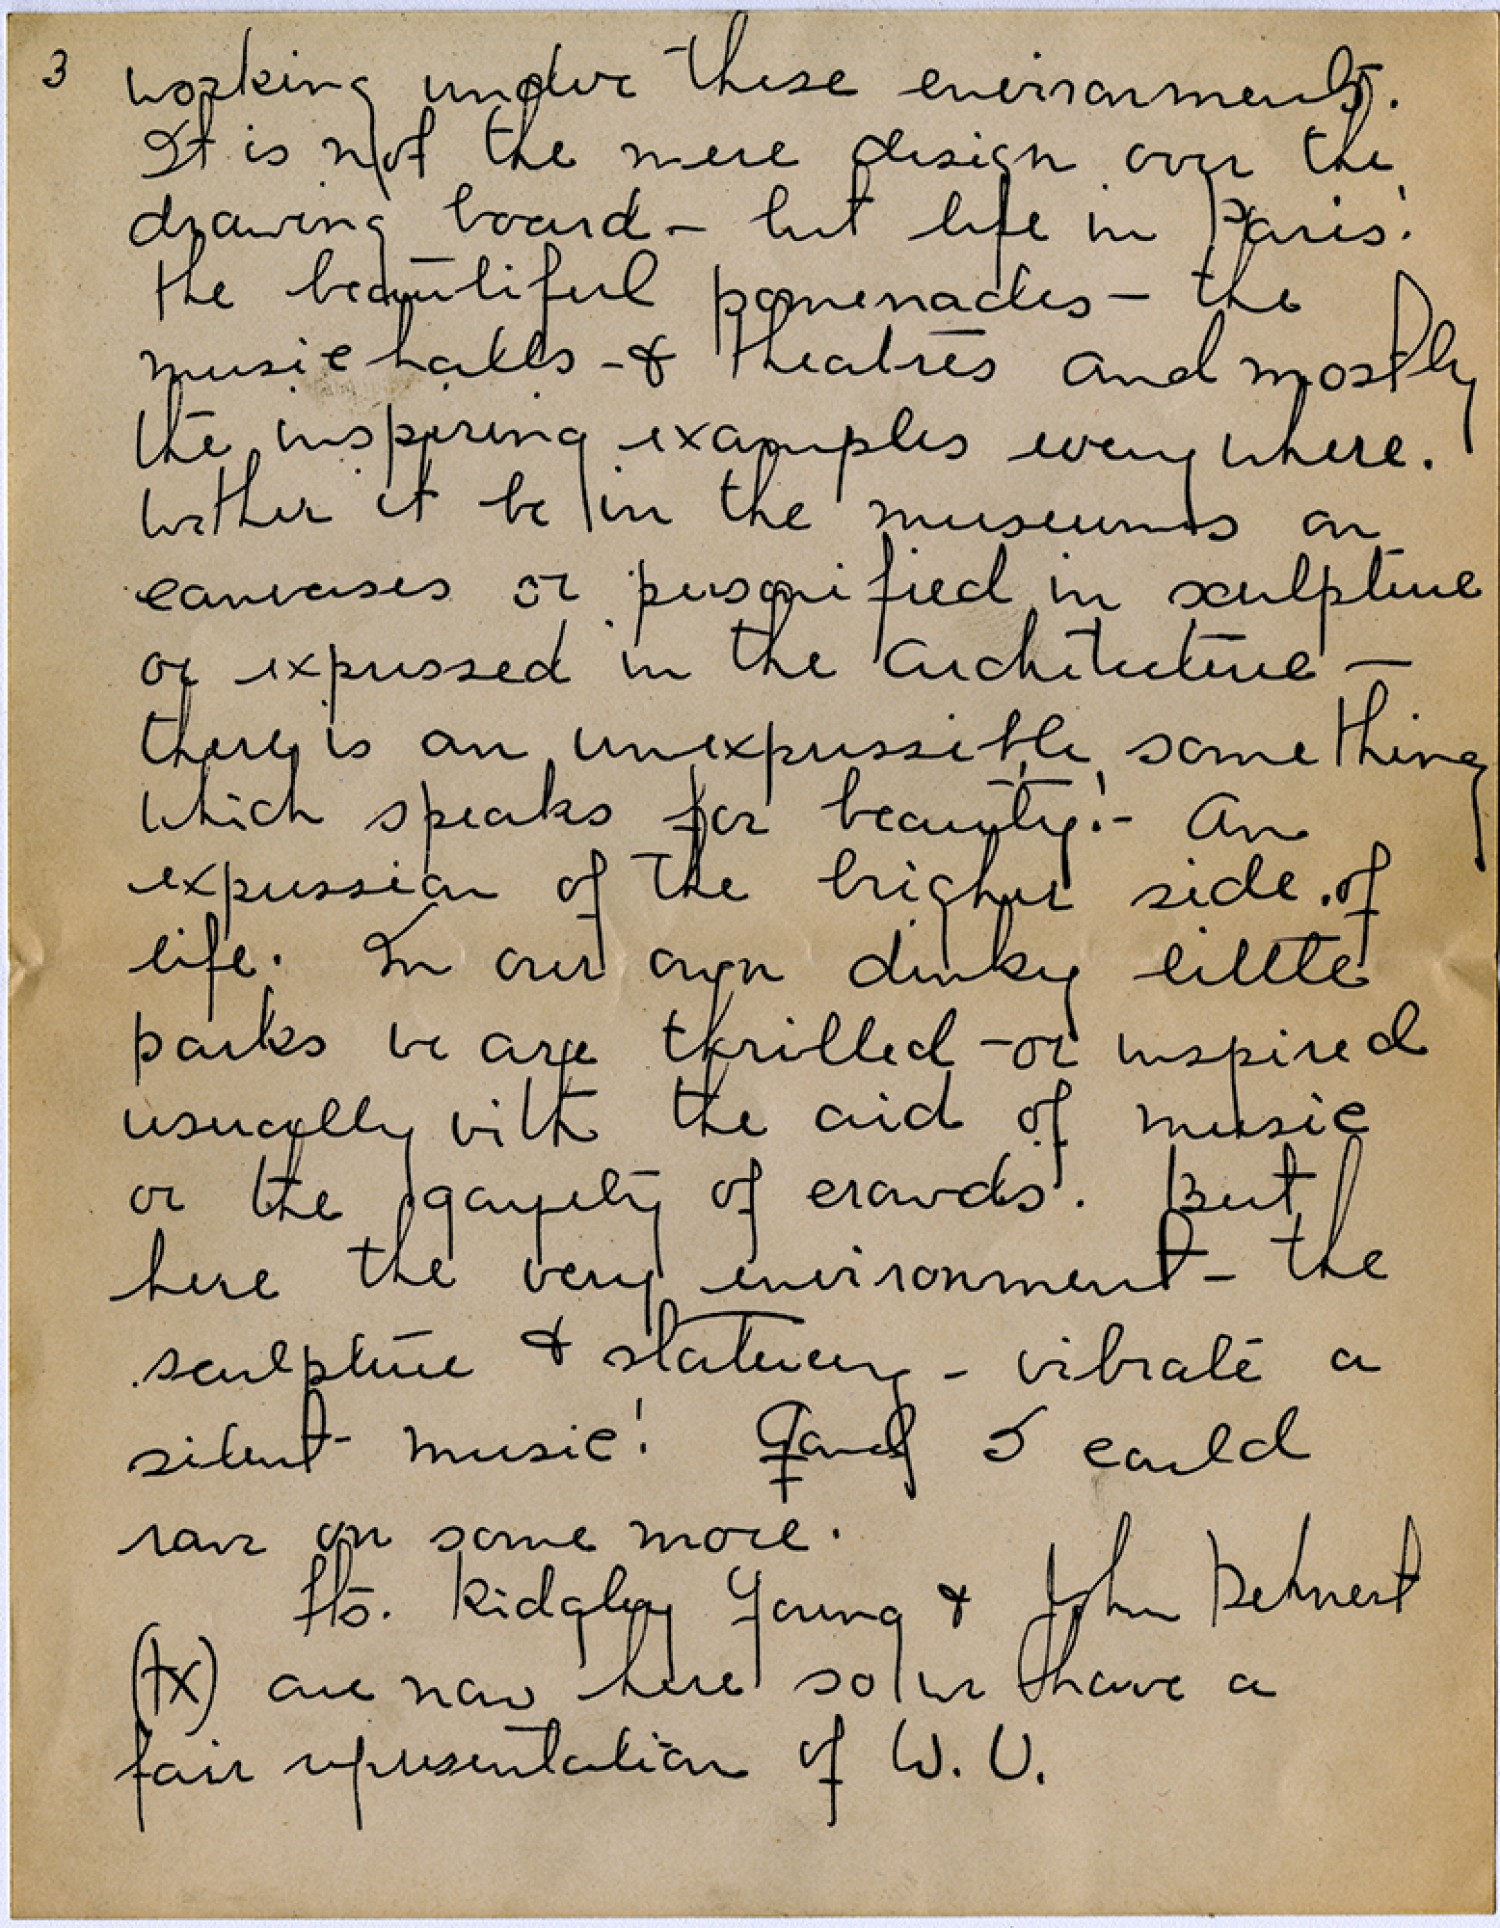 3 working under these environments.
It is not the mere design over the
drawing board - but life in Paris!
the beautiful pomenades - the
music halls - & theatres and mostly
the inspiring examples every where.
Wether it be in the museums on
canvases or personified in sculpture
or expressed in the architecture -
there is an unexpressible something
which speaks for beauty! - An
expression of the brigher side of
life. In our own dinky little
parks we are thrilled - or inspired
usually with the aid of music
or the gayety of crowds. But
here the very environment - the
sculpture & statuery - vibrate a
silent music! and I could
rave on some more.
Ridgley Young & John Behnert
(tx) are now here so we have a
fair representation of W. U.